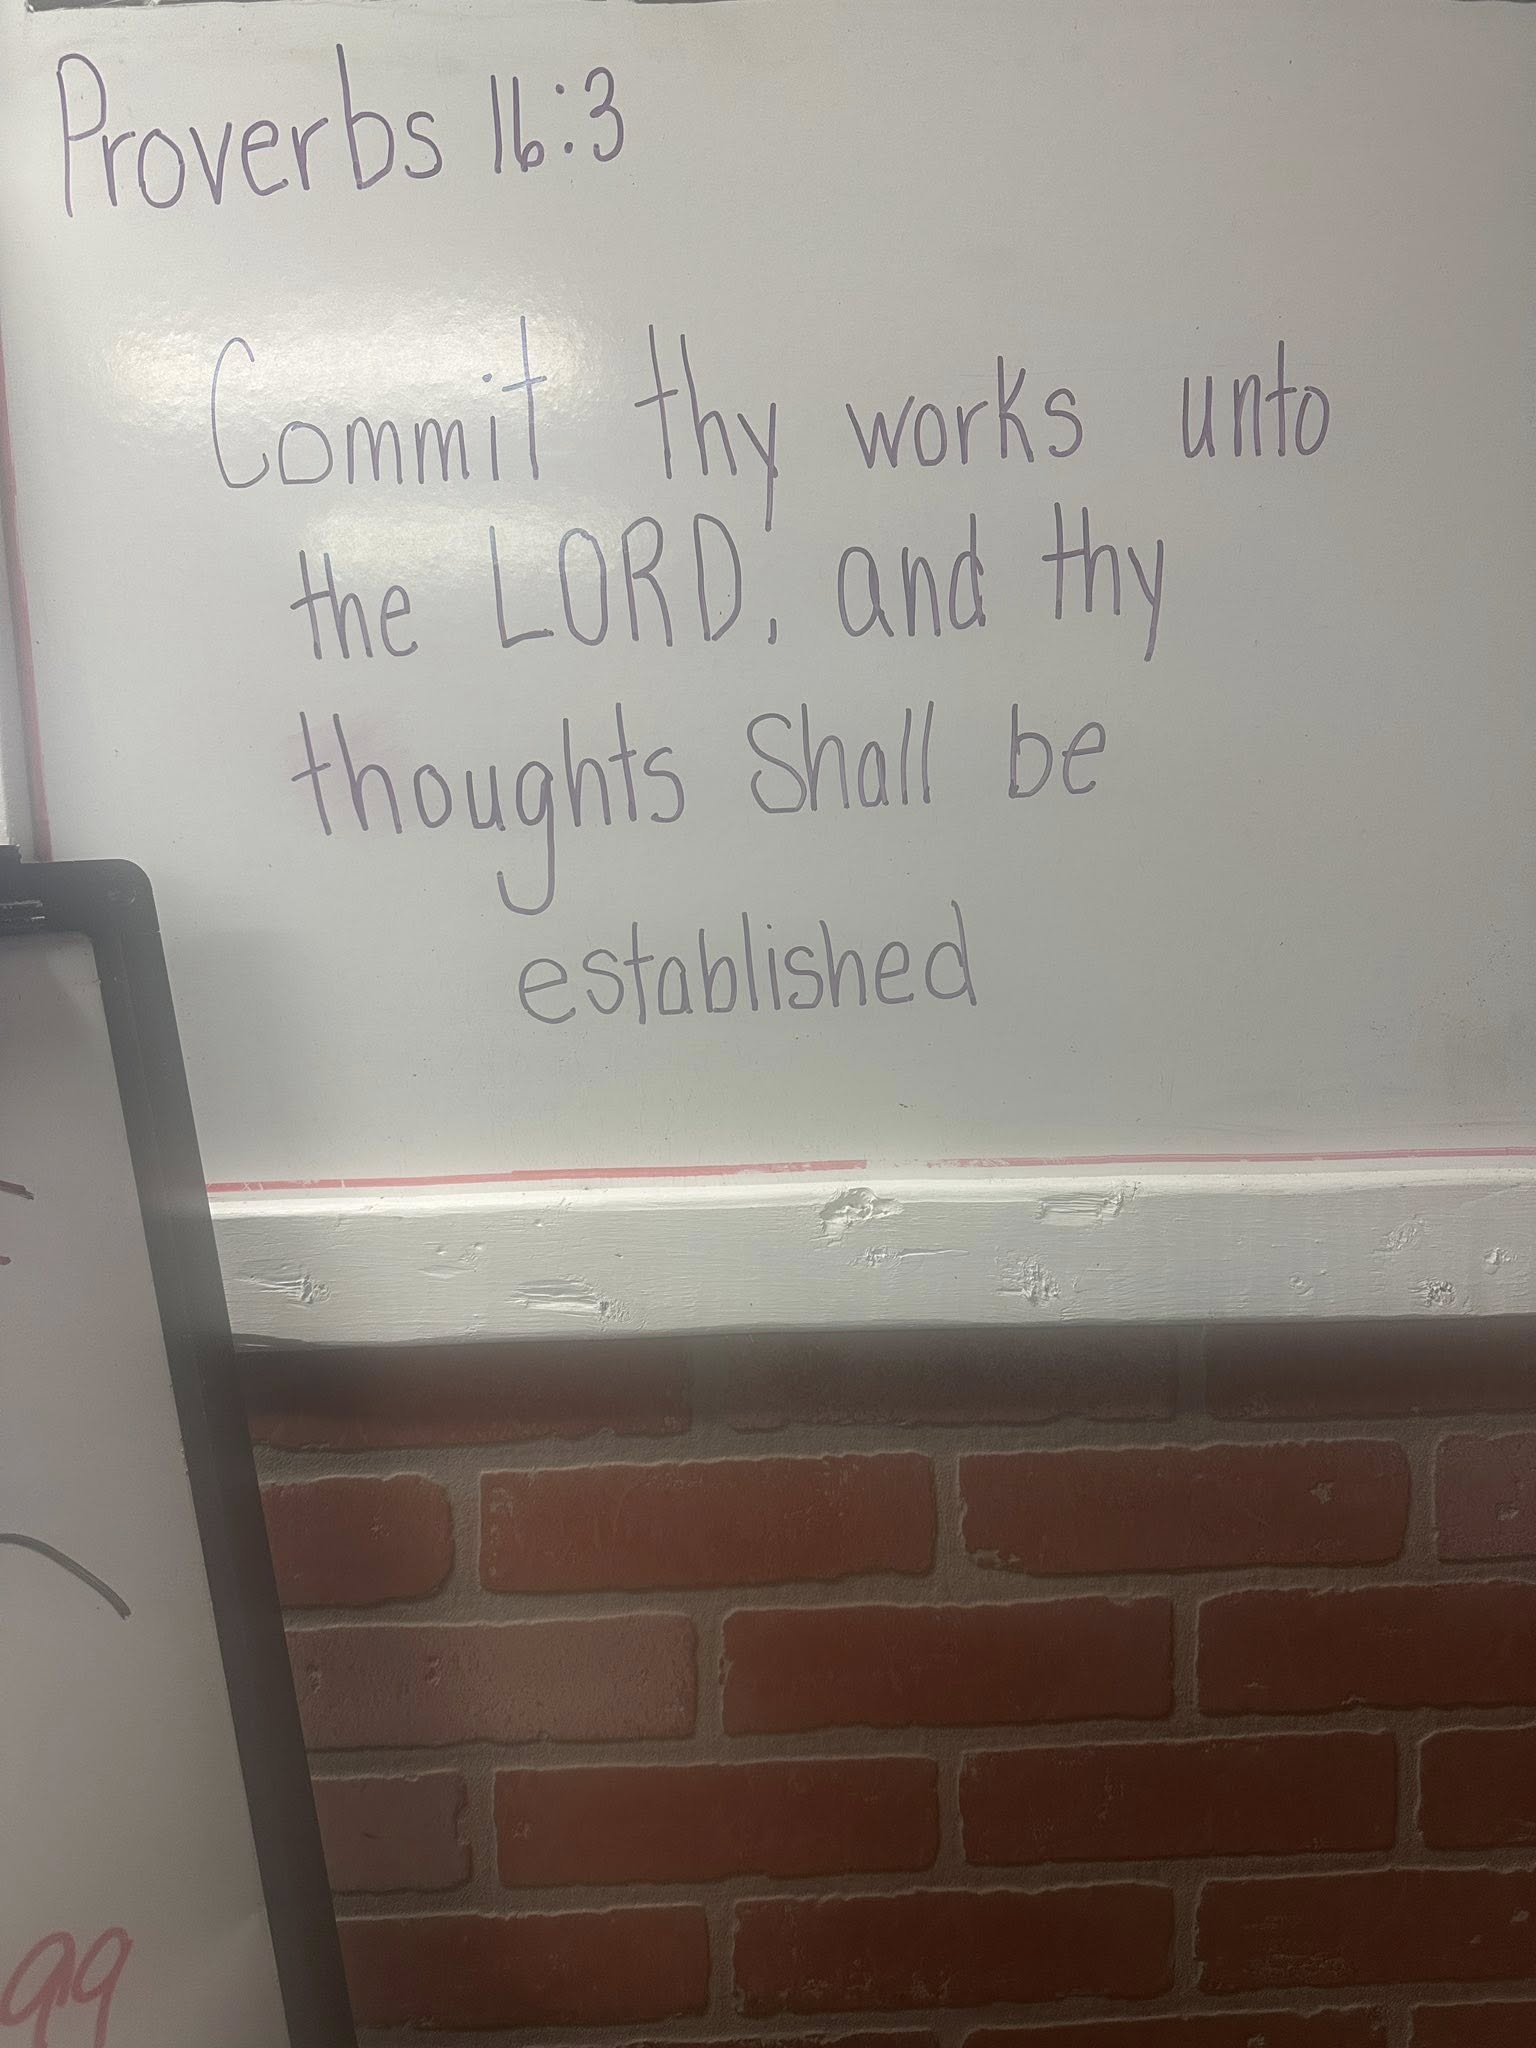 Proverbs 16:3
Commit thy works unto
the LORD, and thy
thoughts Shall be
established
99